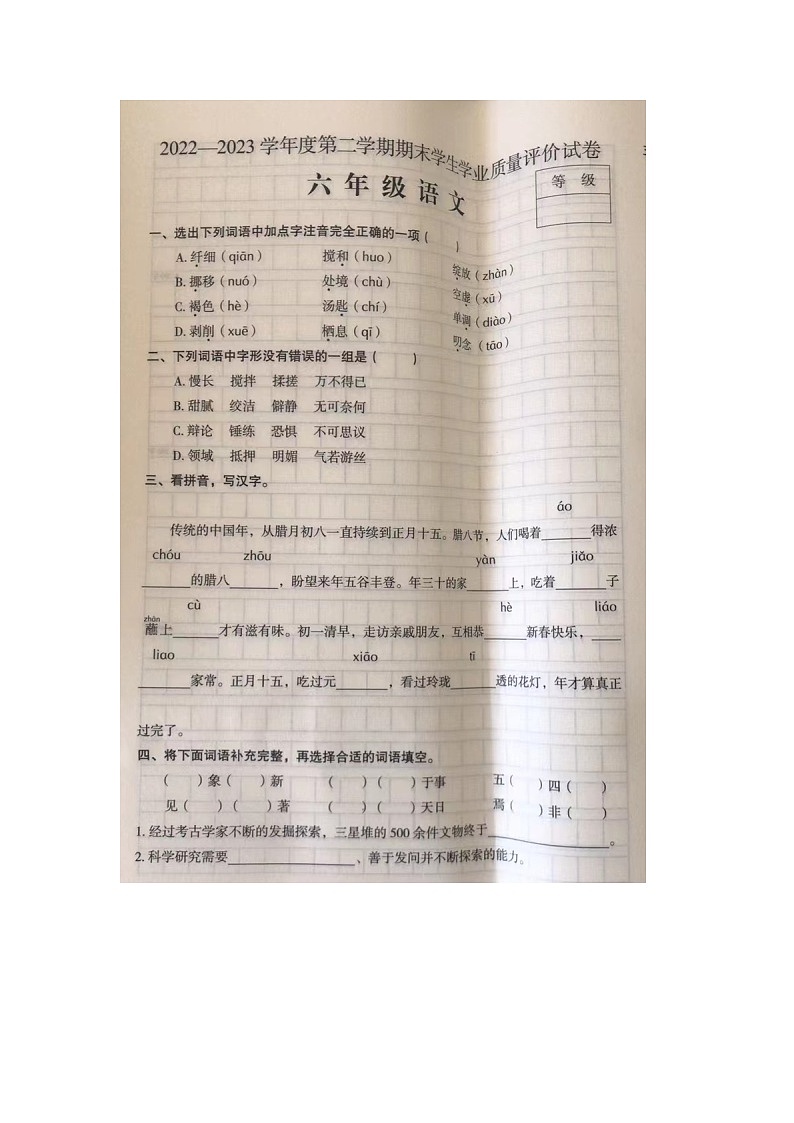 2022—2023 学年度第二学期期末学生学业质量评价试卷
六年级语文
等 级
一、选出下列词语中加点字注音完全正确的一项( )
A. 纤细(qiān) 搅和(huo) 绽放(zhàn)
B. 挪移(nuó) 处境(chù) 空虚(xū)
C. 褐色(hè) 汤匙(chí) 单调(diào)
D. 剥削(xuē) 栖息(qī) 叨念(tāo)
二、下列词语中字形没有错误的一组是( )
A. 慢长 搅拌 揉搓 万不得已
B. 甜腻 绞洁 僻静 无可奈何
C. 辩论 锤练 恐惧 不可思议
D. 领域 抵押 明媚 气若游丝
三、看拼音，写汉字。
áo
传统的中国年，从腊月初八一直持续到正月十五。腊八节，人们喝着______得浓
chóu zhōu yàn jiǎo
______的腊八______，盼望来年五谷丰登。年三十的家______上，吃着______子
cù hè liáo
zhàn
蘸上______才有滋有味。初一清早，走访亲戚朋友，互相恭______新春快乐，____
liao xiāo tī
______家常。正月十五，吃过元______，看过玲珑______透的花灯，年才算真正
过完了。
四、将下面词语补充完整，再选择合适的词语填空。
( )象( )新 ( )( )于事 五( )四( )
见( )( )著 ( )( )天日 焉( )非( )
1. 经过考古学家不断的发掘探索，三星堆的 500 余件文物终于______________。
2. 科学研究需要______________、善于发问并不断探索的能力。